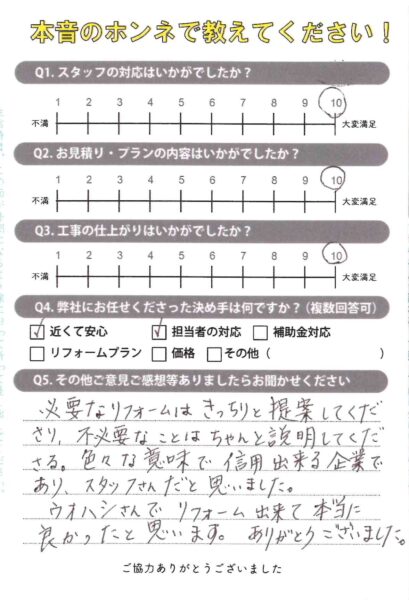 本音のホンネで教えてください！
Q1. スタッフの対応はいかがでしたか？
1 2 3 4 5 6 7 8 9 10
不満 大変満足
Q2. お見積り・プランの内容はいかがでしたか？
1 2 3 4 5 6 7 8 9 10
不満 大変満足
Q3. 工事の仕上がりはいかがでしたか？
1 2 3 4 5 6 7 8 9 10
不満 大変満足
Q4. 弊社にお任せくださった決め手は何ですか？（複数回答可）
☑ 近くて安心 ☑ 担当者の対応 □ 補助金対応
□ リフォームプラン □ 価格 □ その他（ ）
Q5. その他ご意見ご感想等ありましたらお聞かせください
必要なリフォームはきっちりと提案してくだ
さり、不必要なことはちゃんと説明してくだ
さる。色々な意味で信用出来る企業で
あり、スタッフさんだと思いました。
ウオハシさんでリフォーム出来て本当に
良かったと思います。ありがとうございました。
ご協力ありがとうございました